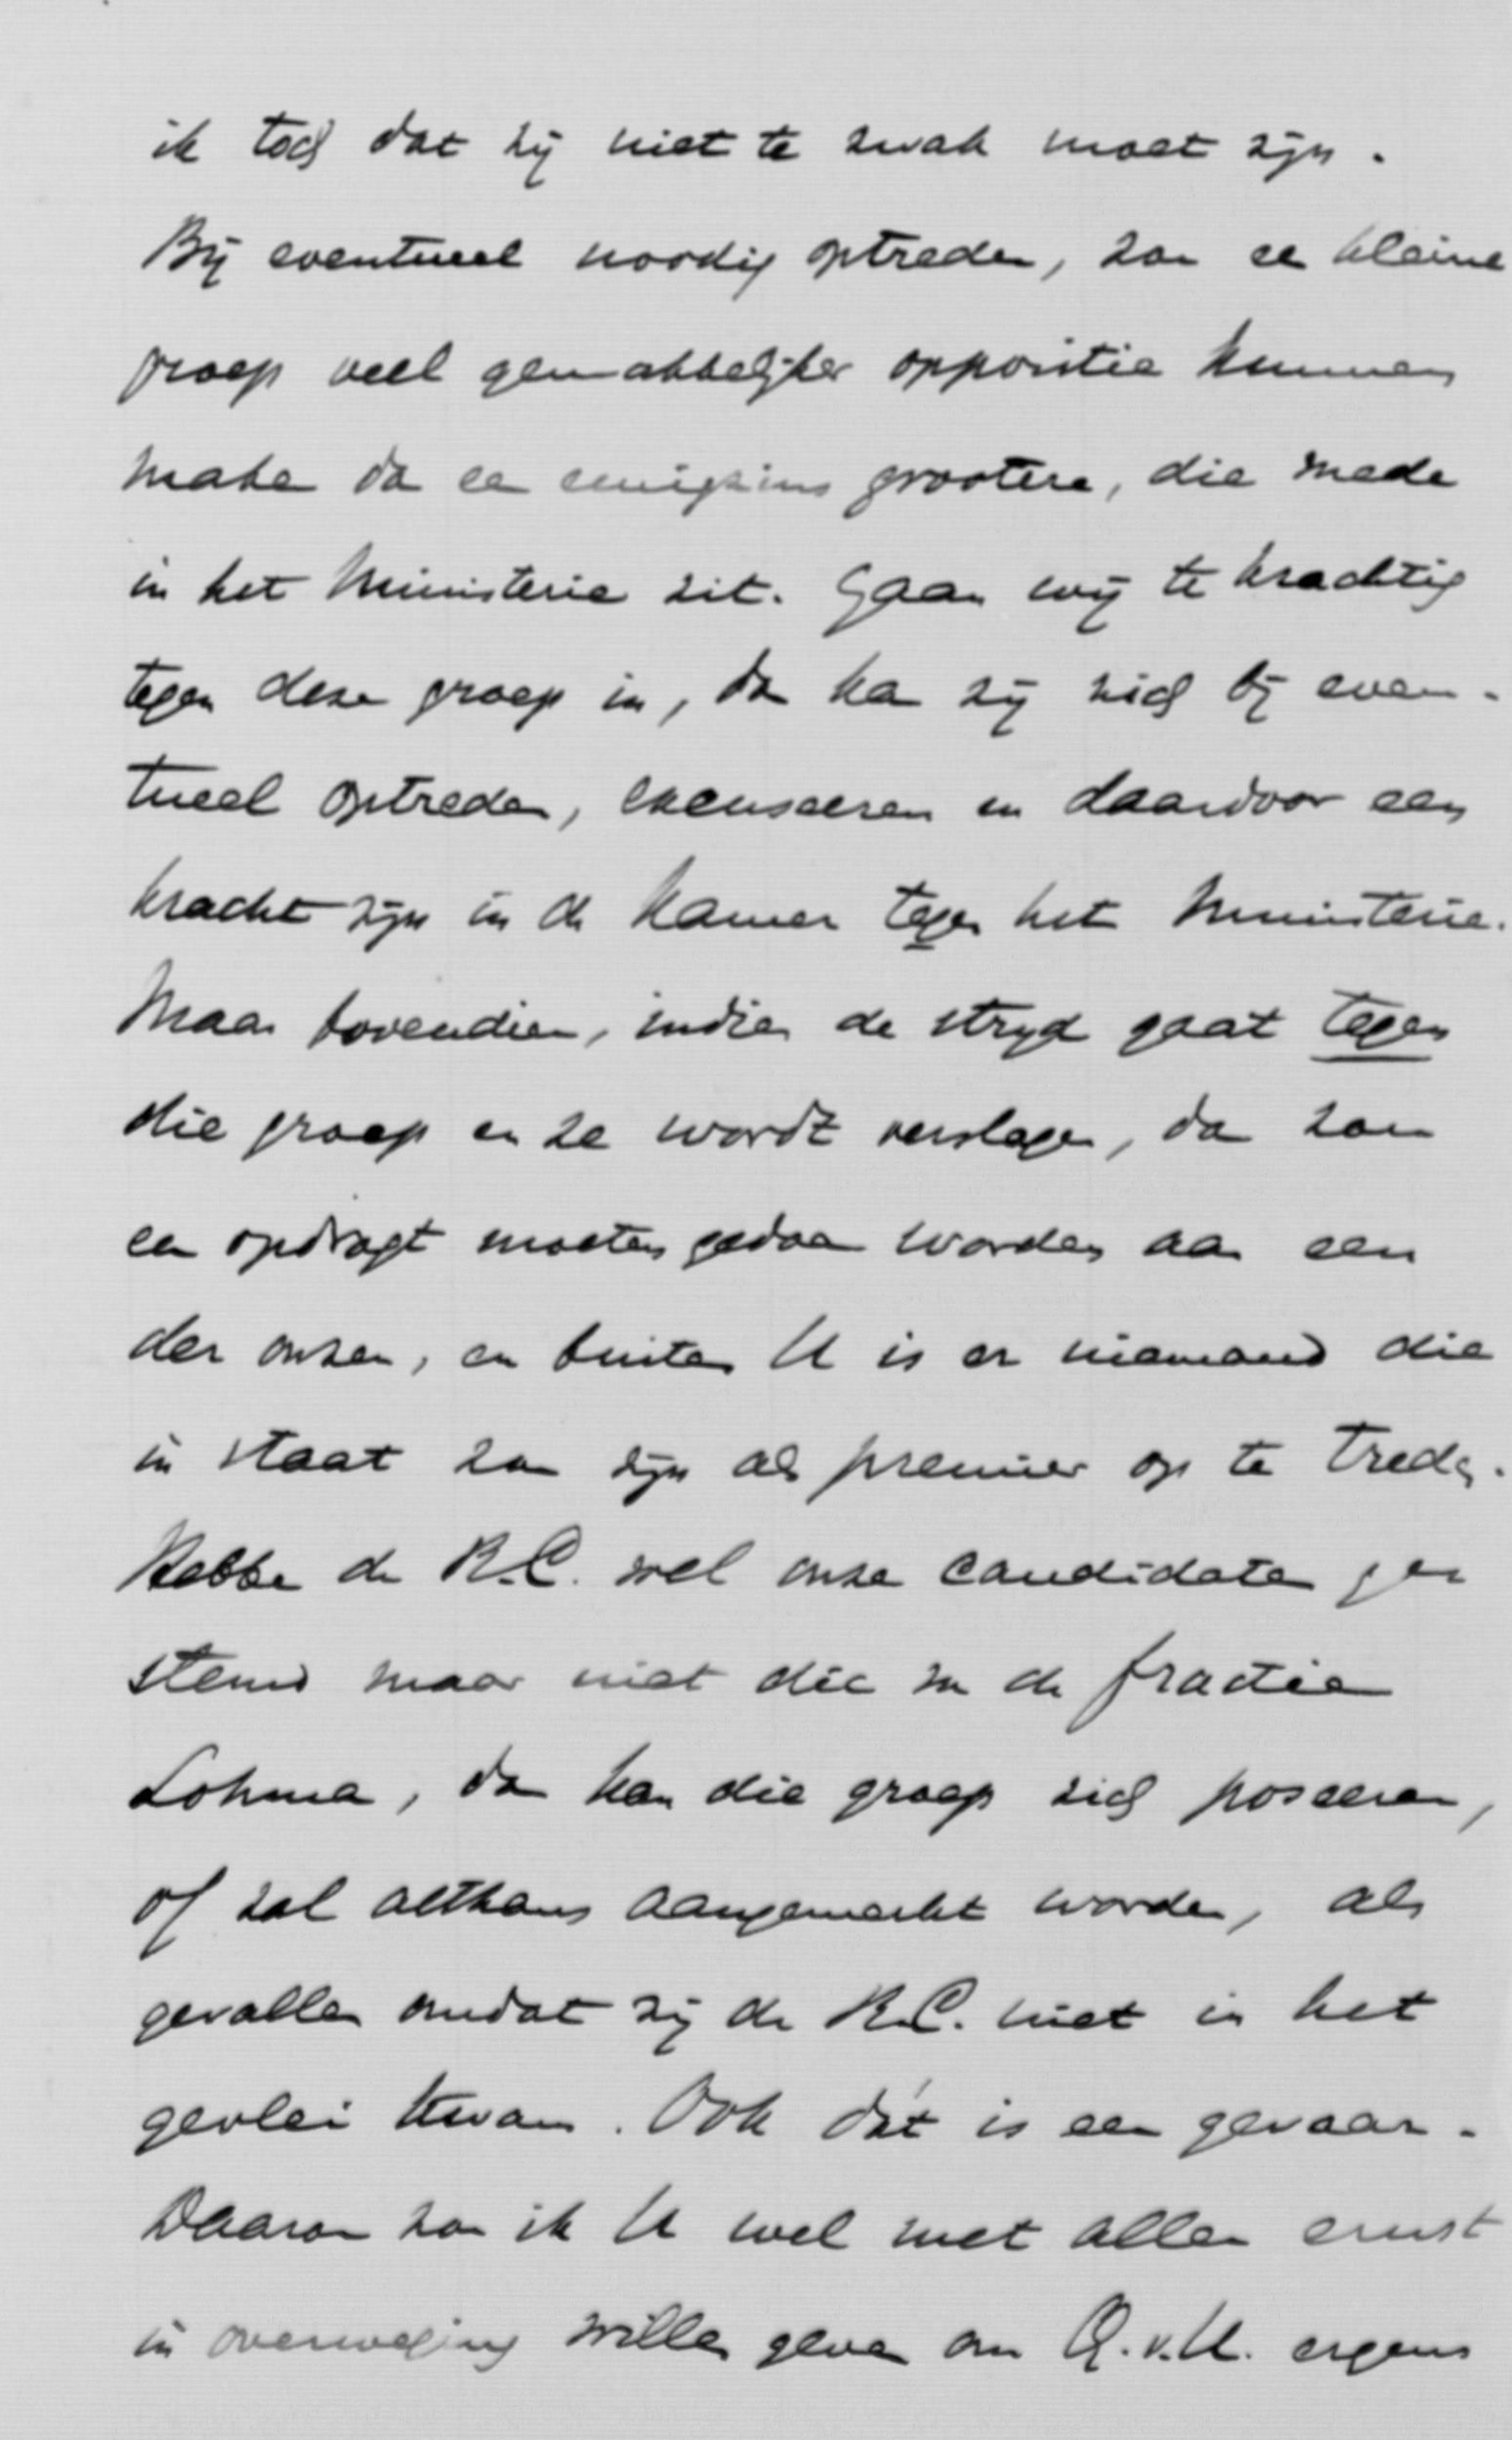 ik toch dat zij niet te zwak moet zijn.
Bij eventueel noodig optreden, zou een kleine
groep veel gemakkelijker oppositie kunnen
maken dan een eenigszins grootere, die mede
in het Ministerie zit. Gaan wij te krachtig
tegen deze groep in, dan kan zij zich bij even-
tueel optreden, excuseeren en daardoor een
kracht zijn in de Kamer tegen het Ministerie.
Maar bovendien, indien de strijd gaat tegen
die groep en ze wordt verslagen, dan zou
een opdragt moeten gedaan worden aan een
der onzen, en buiten U is er niemand die
in staat zou zijn als premier op te treden.
Hebben de R.C. wel onze candidaten ge
stemd maar niet die van de fractie
Lohman, dan kan die groep zich poseeren,
of zal althans aangemerkt worden, als
gevallen omdat zij de R.C. niet in het
gevlei kwam. Ook dát is een gevaar.
Daarom zou ik U wel met allen ernst
in overweging willen geven om Q.v.U. ergens